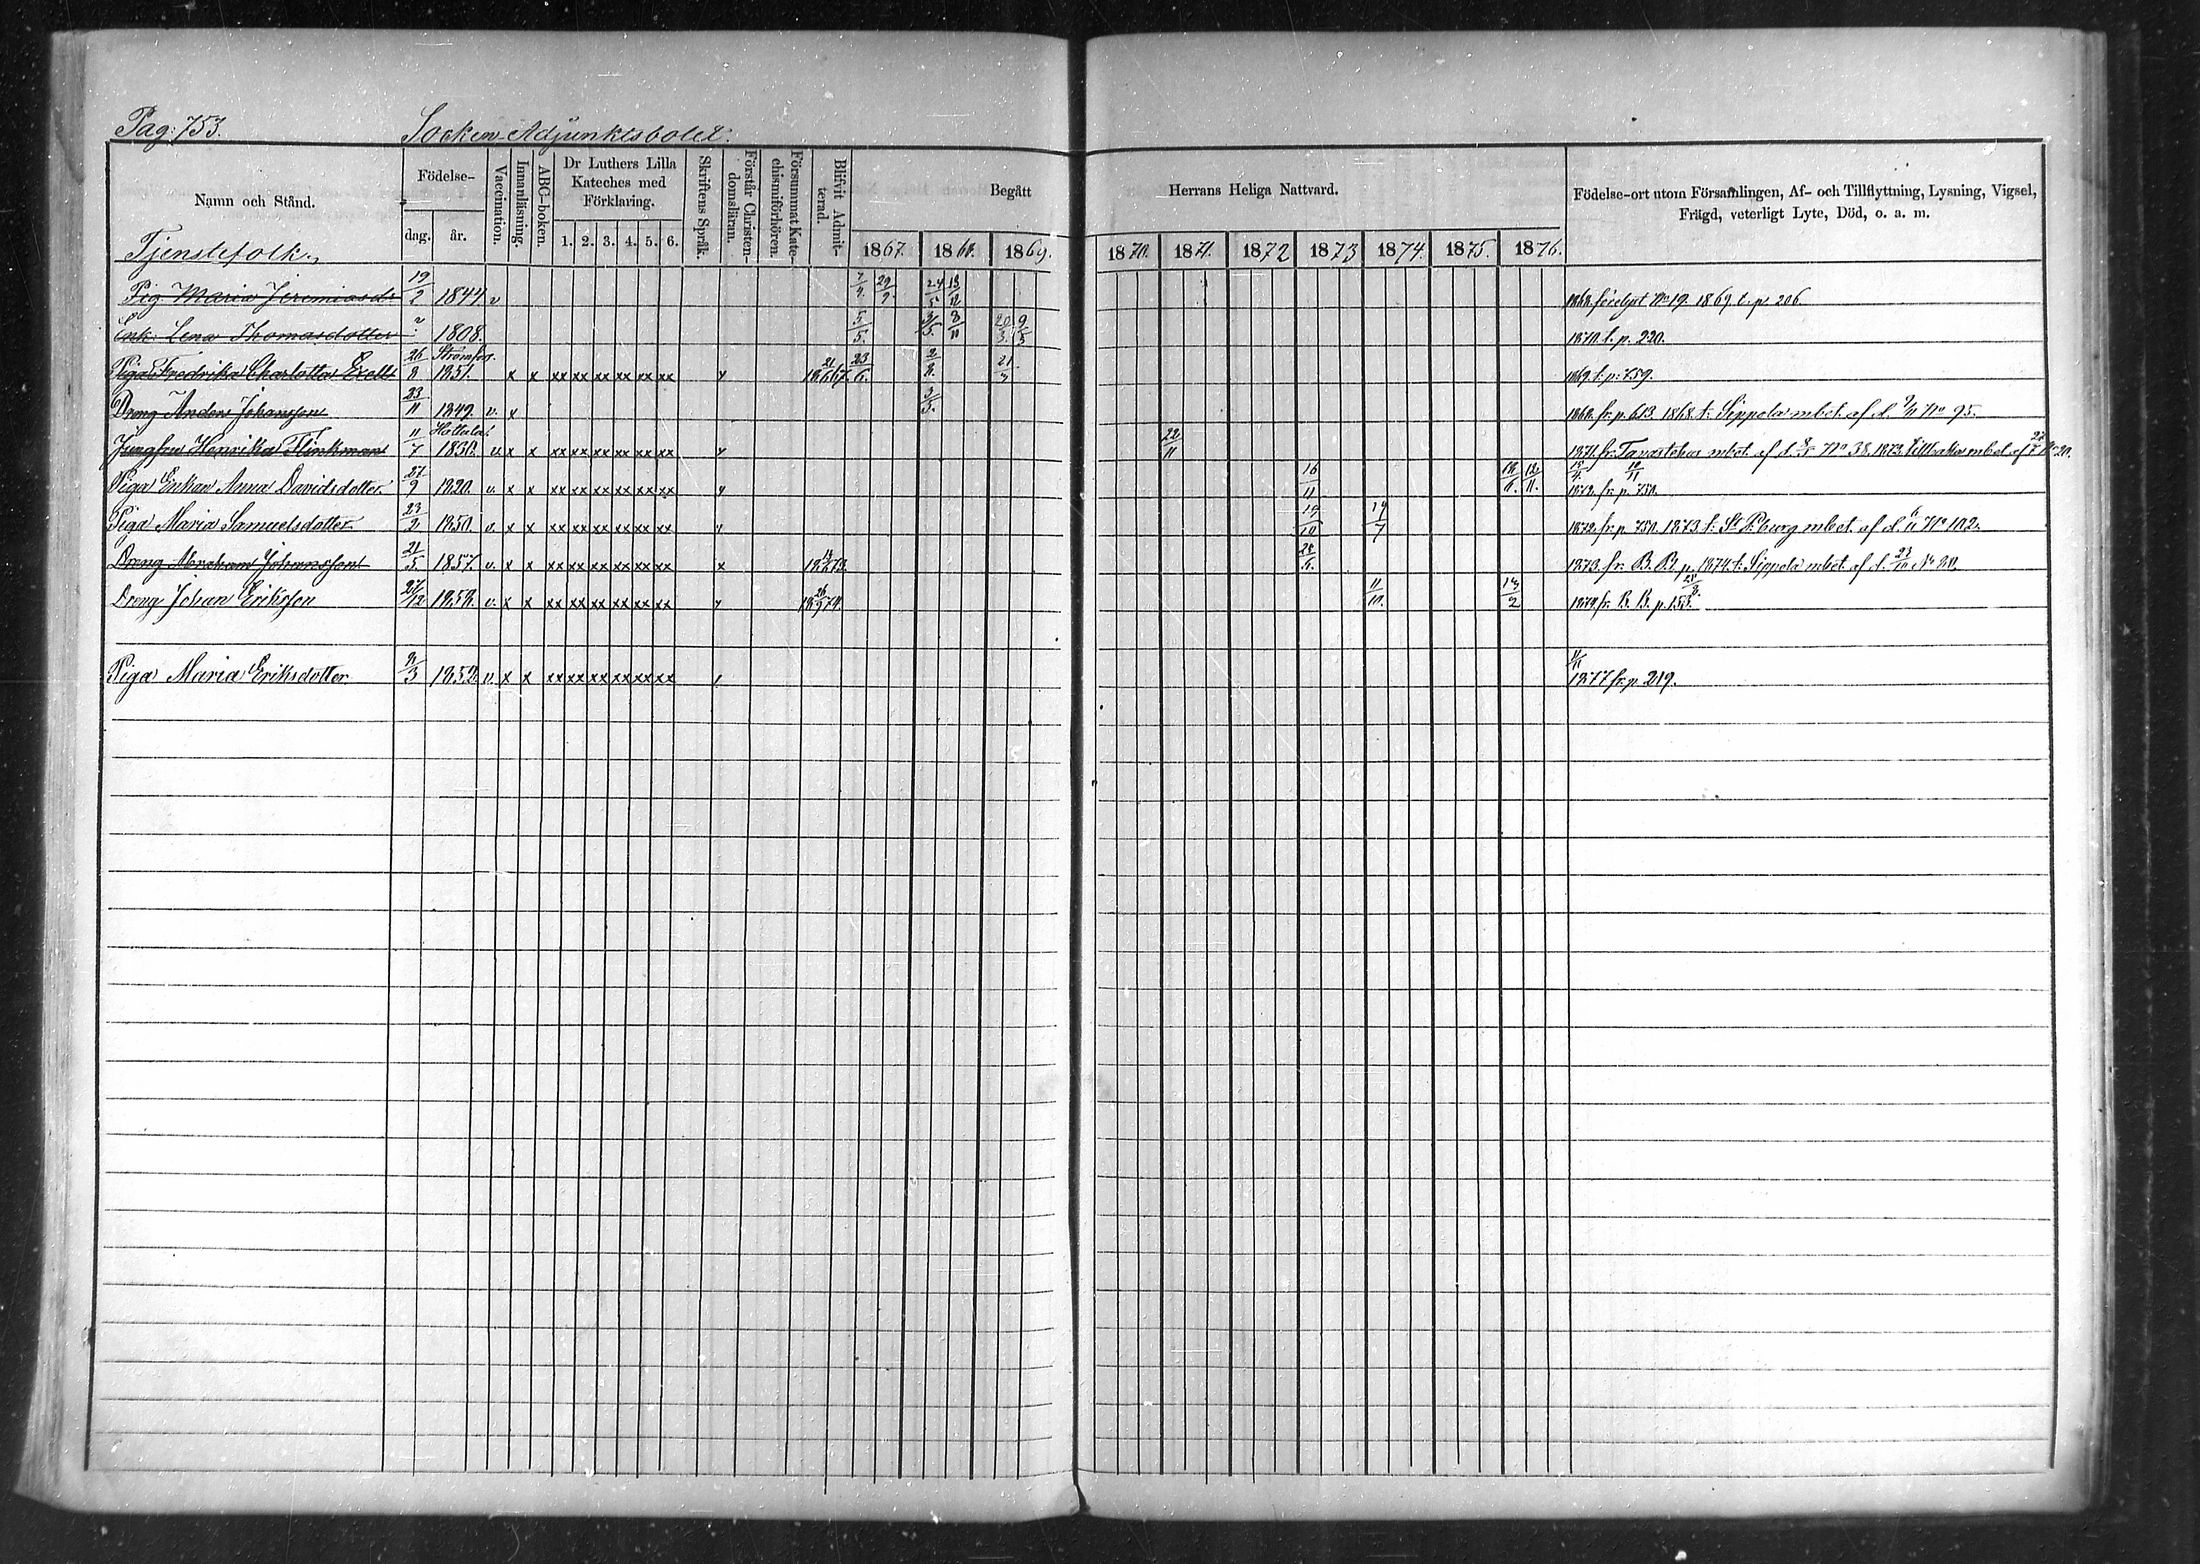 Pag: 753. Socken-Adjunktsbolet.
Namn och Stånd. Födelse- dag. år. Vaccination. Innanläsning. ABC-boken. Dr Luthers Lilla Kateches med Förklaring. 1. 2. 3. 4. 5. 6. Skriftens Språk. Förstår Christendomsläran. Försummat Katechismiförhören. Blifvit Admitterad. Begått Herrans Heliga Nattvard. Födelse-ort utom Församlingen, Af- och Tillflyttning, Lysning, Vigsel, Frägd, veterligt Lyte, Död, o. a. m.
1867. 1868. 1869. 1870. 1871. 1872 1873 1874. 1875. 1876.
Tjenstefolk.
Pig. Maria Jeremiasdr 19/2 1844 v 29/9 24/5 13/12 1869 t. p. 206
Enk. Lena Thomasdotter 1808. 5/5. 3/5. 8/11 20/3. 9/5 1870 t. p. 220.
Piga Fredrika Charlotta Exell 26/8 Strömfors 1851. x x xx xx xx xx xx xx 23/6. 2/8. 21/3 1869 t. p. 759.
Dreng Anders Johansson 23/11 1849. v. x 3/5. 1868. fr. p. 613. 1868. t. Sippola mbet. af d. No 95.
Jungfru Henrika Flinkman 11/7 Hollola 1830. v. x x xx xx xx xx xx xx 22/11 1871. fr. Tavastehus mbet. af d. No 38. 1873.
Piga Enkan Anna Davidsdotter. 27/9 1820. v. x x xx xx xx xx xx xx 16/11 18/6. 12/11. fr. p. 750.
Piga Maria Samuelsdotter 23/2 1850 v. x x xx xx xx xx xx xx 19/10 19/7 1872. fr. p. 750. 1873 t. St P.burg mbet. af d. No 102.
Dreng Abraham Johansson 21/5 1857. v. x x xx xx xx xx xx xx x 28/6. 1873. fr. B. B. p. 1874. t. Sippola mbet. af d. 23/10 No 80.
Dreng Johan Eriksson 27/12 1858. v. x x xx xx xx xx xx xx 11/10. 13/2 1874. fr. B. B. p. 153.
Piga Maria Eriksdotter. 9/3 1852. v. x x xx xx xx xx xx xx 1877 fr. p. 219.